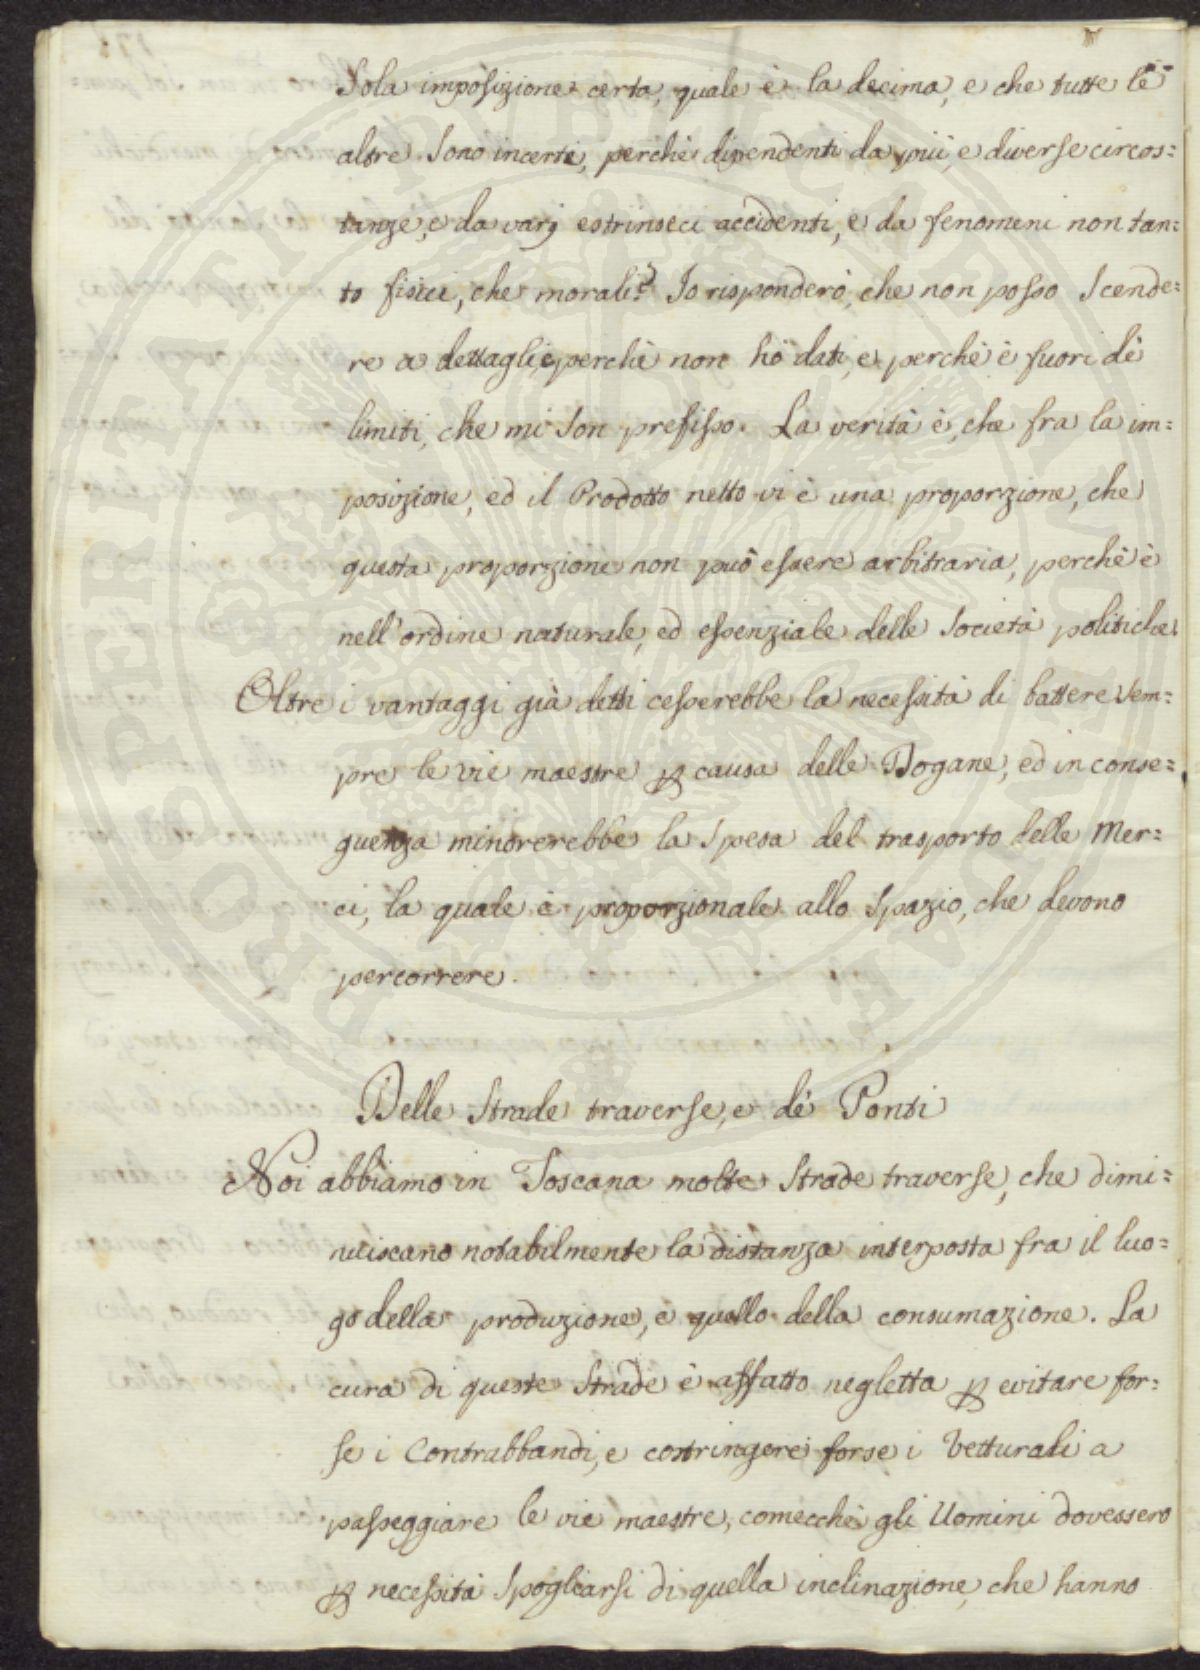 Sola imposizione certa, quale è la decima, e che tutte le
altre sono incerte, perchè dipendenti da più, e diverse circos=
tanze, e da varj estrinseci accidenti, e da fenomeni non tan=
to fisici, che morali? Io risponderò, che non posso scende=
re a dettagli, e perchè non hò dati, e perchè è fuori dè
limiti, che mi son prefisso. La verità è, che fra la im=
posizione, ed il Prodotto netto vi è una proporzione, che
questa proporzione non può essere arbitraria, perchè è
nell'ordine naturale, ed essenziale delle Società politiche
Oltre i vantaggi già detti cesserebbe la necessità di battere sem=
pre le vie maestre p causa delle Dogane, ed in conse=
guenza minorerebbe la spesa del trasporto delle Mer=
ci, la quale è proporzionale allo spazio, che devono
percorrere.
Delle Strade traverse, e dè Ponti
Noi abbiamo in Toscana molte Strade traverse, che dimi=
nuiscano notabilmente la distanza interposta fra il luo=
go della produzione, e quello della consumazione. La
cura di queste Strade è affatto negletta p evitare for=
se i Contrabbandi, e costringere forse i Vetturali a
passeggiare le vie maestre, comecchè gli Uomini dovessero
p necessità spogliarsi di quella inclinazione, che hanno
PROSPERITATI PUBLICAE AUGENDAE